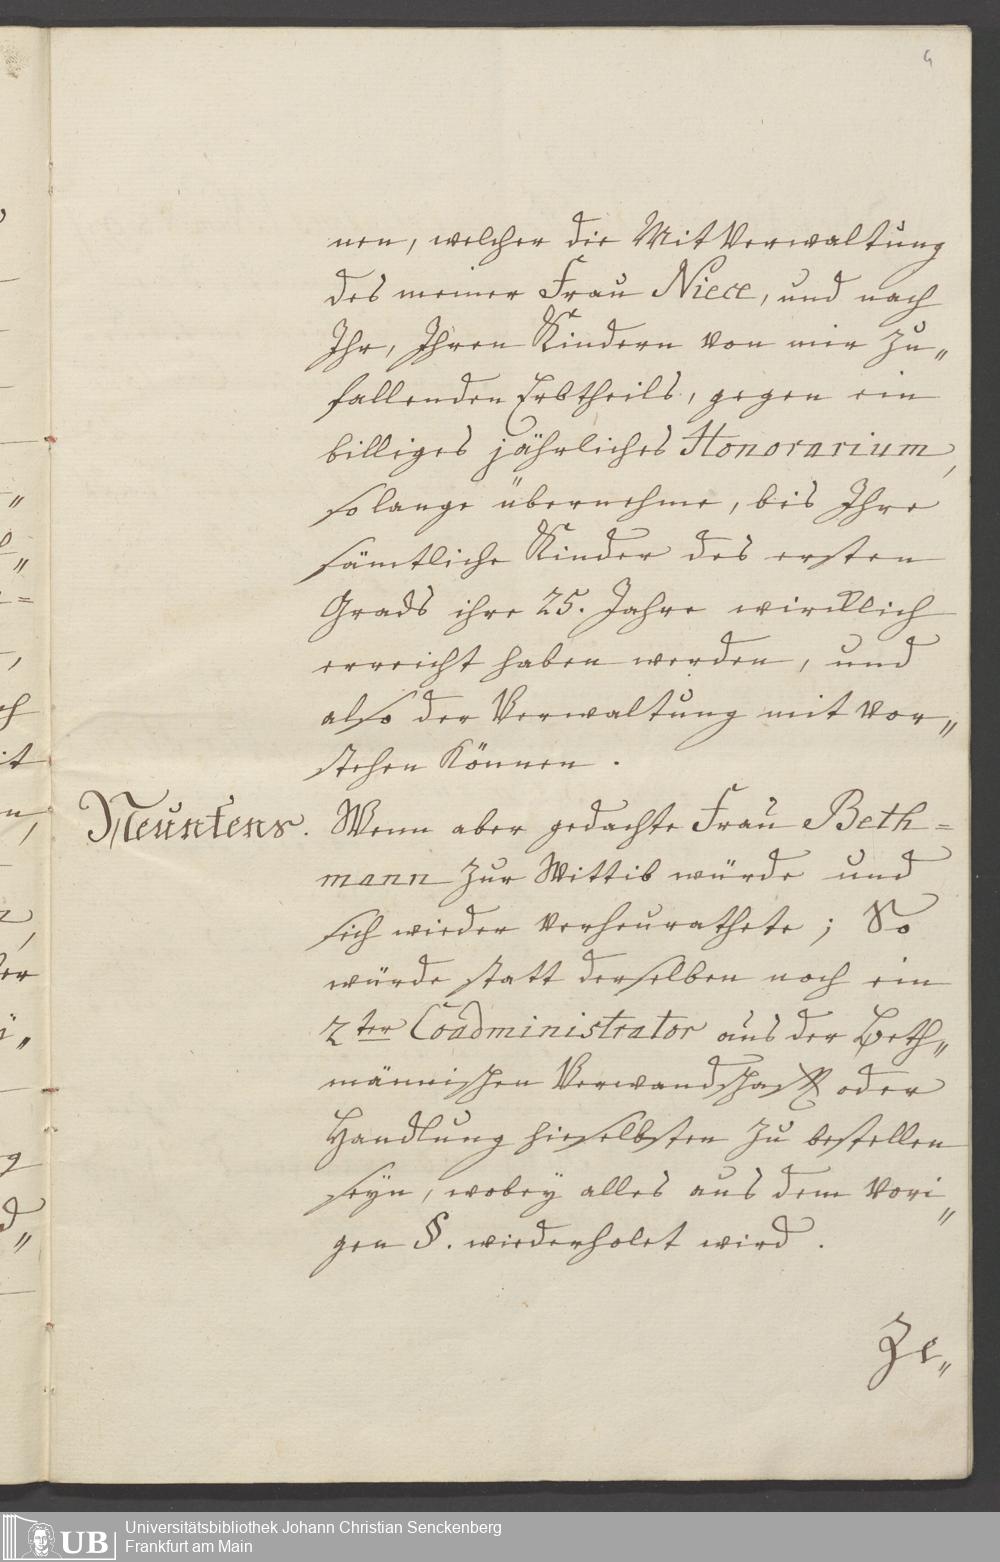 4
nen, welcher die MitVerwaltung
des meiner Frau Niece, und nach
Ihr, Ihren Kindern von mir zu„
fallenden Erbtheils, gegen ein
billiges jährliches Honorarium,
so lange übernehme, bis Ihre
sämtliche Kinder des ersten
Grads ihre 25. Jahre wircklich
erreicht haben werden, und
also der Verwaltung mit vor„
stehen können.
Neüntens. Wenn aber gedachte Frau Beth=
mann zur Wittib würde und
sich wieder verheurathete; So
würde statt derselben noch ein
2ter Coadministrator aus der Beth„
männischen Verwandschafft oder
Handlung hieselbsten zu bestellen
seyn, wobey alles aus dem vori„
gen §. wiederholet wird.
Ze„
UB
Universitätsbibliothek Johann Christian Senckenberg
Frankfurt am Main